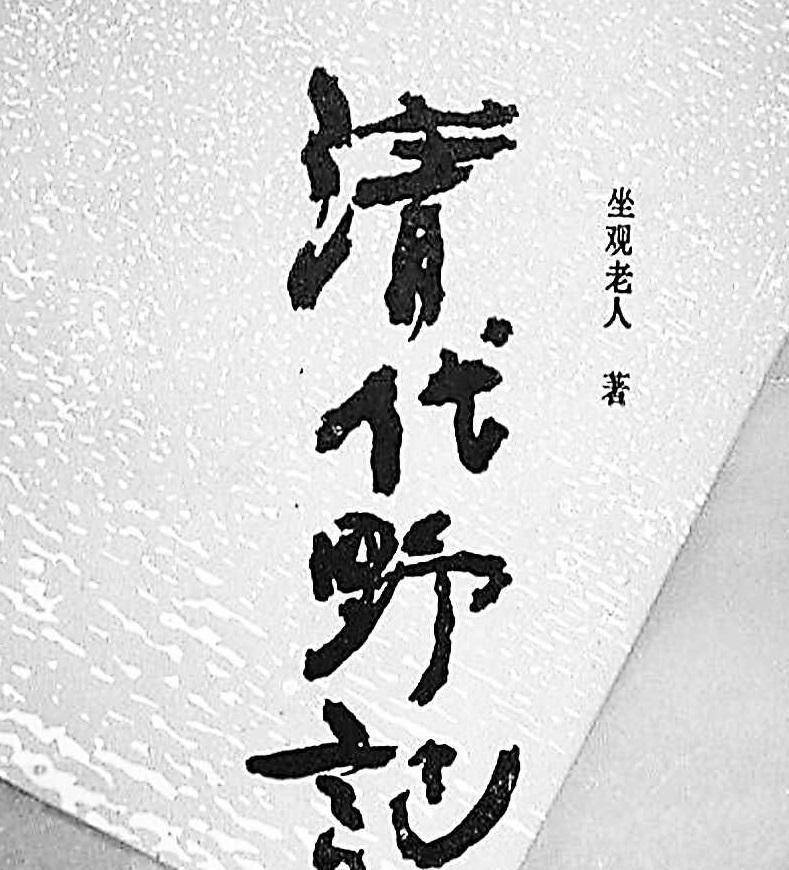 坐观老人 著
清代野記